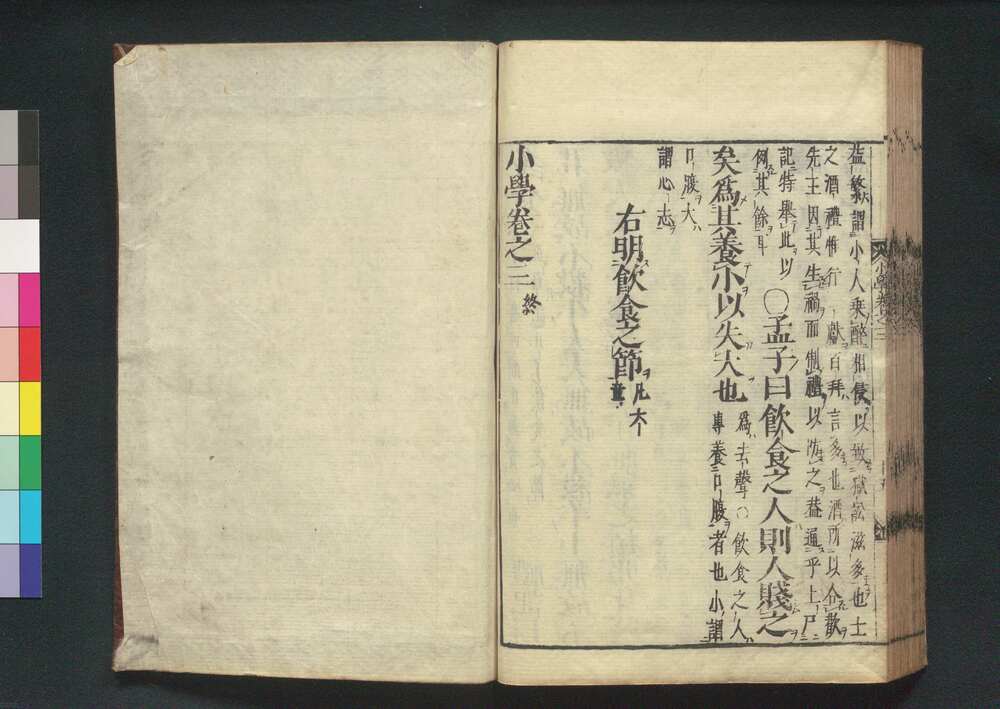 益繁謂小人乗醉相侵以致獄訟滋多也士
之酒禮惟一獻百拜言多也酒所以合歡
先王因其生禍而制禮以防之蓋通乎上下
記特舉此以
例其餘耳
○孟子曰飲食之人則人賤之
矣為其養小以失大也
為去聲○飲食之人
專養口腹者也小謂
口腹大
謂心志
右明飲食之節
凡六
章
小學卷之三終
小學卷之三